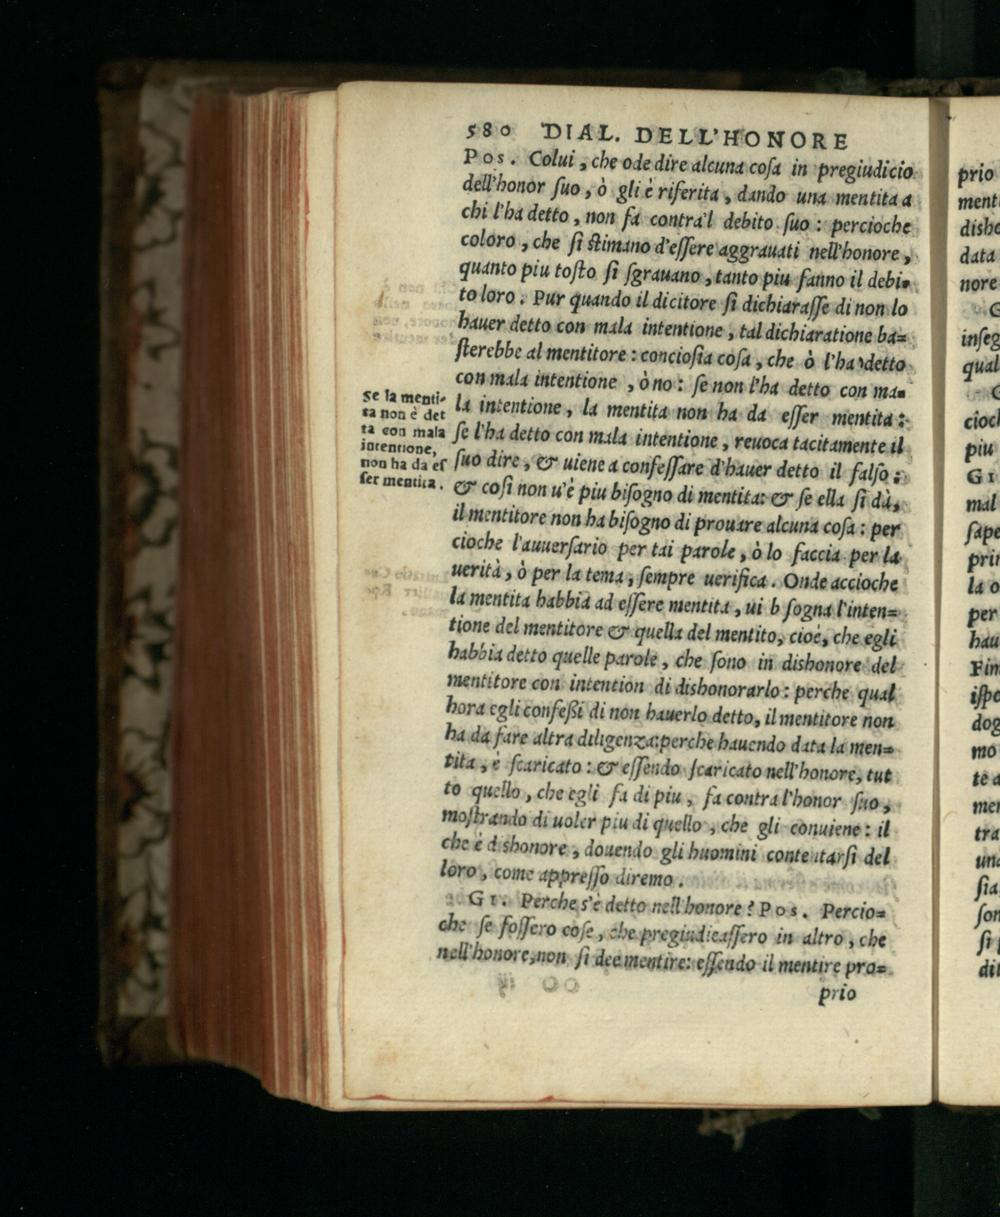 580 DIAL. DELL'HONORE
Pos. Colui, che ode dire alcuna coſa in pregiudicio
dell'honor ſuo, ò gli è riferita, dando una mentita a
chi l'ha detto, non fa contra'l debito ſuo: percioche
coloro, che ſi ſtimano d'eſſere aggrauati nell'honore,
quanto piu toſto ſi ſgrauano, tanto piu fanno il debi=
to loro. Pur quando il dicitore ſi dichiaraſſe di non lo
hauer detto con mala intentione, tal dichiaratione ba=
ſterebbe al mentitore: concioſia coſa, che ò l'ha detto
con mala intentione, ò no: ſe non l'ha detto con ma=
la intentione, la mentita non ha da eſſer mentita:
ſe l'ha detto con mala intentione, reuoca tacitamente il
ſuo dire, & uiene a confeſſare d'hauer detto il falſo:
& coſi non u'è piu biſogno di mentita: & ſe ella ſi dà,
il mentitore non ha biſogno di prouare alcuna coſa: per
cioche l'auuerſario per tai parole, ò lo faccia per la
uerità, ò per la tema, ſempre uerifica. Onde accioche
la mentita habbia ad eſſere mentita, ui b ſogna l'inten=
tione del mentitore & quella del mentito, cioè, che egli
habbia detto quelle parole, che ſono in dishonore del
mentitore con intention di dishonorarlo: perche qual
hora egli confeßi di non hauerlo detto, il mentitore non
ha da fare altra diligenza: perche hauendo data la men=
tita, è ſcaricato: & eſſendo ſcaricato nell'honore, tut
to quello, che egli fa di piu, fa contra l'honor ſuo,
moſtrando di uoler piu di quello, che gli conuiene: il
che è d shonore, douendo gli huomini contentarſi del
loro, come appreſſo diremo.
GI. Perche s'è detto nell'honore? Pos. Percio=
che ſe foſſero coſe, che pregiudicaſſero in altro, che
nell'honore, non ſi dee mentire: eſſendo il mentire pro=
prio
Se la menti-
ta non è det
ta con mala
intentione,
non ha da eſ
ſer mentita.
prio
ment
disho
data
nore
G
inſeg
qual
G
cioch
piu
GI
mal
ſape
prin
la o
per
hau
Fin
iſpo
dog
mo
te a
men
tra
una
ſia,
ſon
ſi p
dil